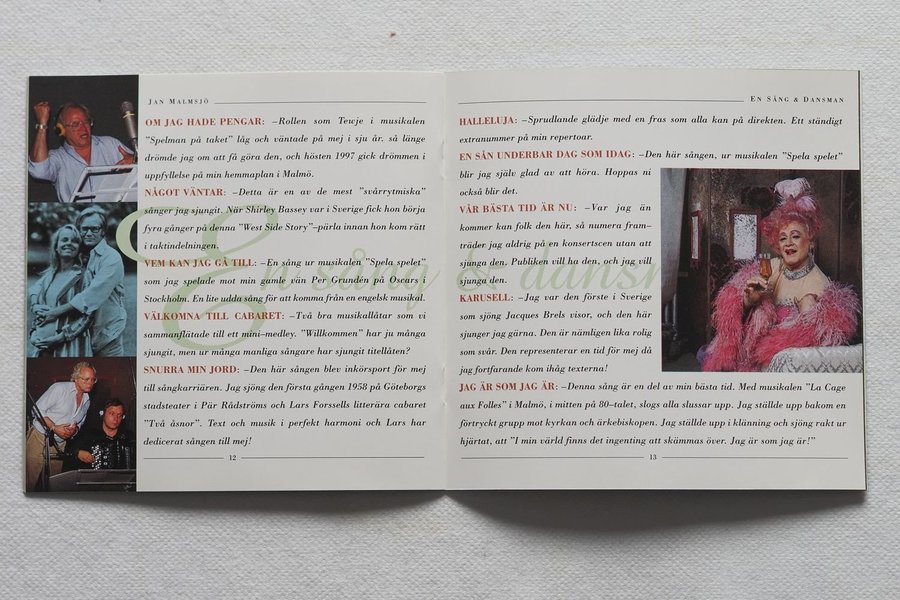 Jan Malmsjö
OM JAG HADE PENGAR: –Rollen som Tewje i musikalen
"Spelman på taket" låg och väntade på mej i sju år. så länge
drömde jag om att få göra den, och hösten 1997 gick drömmen i
uppfyllelse på min hemmaplan i Malmö.
NÅGOT VÄNTAR: –Detta är en av de mest "svårrytmiska"
sånger jag sjungit. När Shirley Bassey var i Sverige fick hon börja
fyra gånger på denna "West Side Story"–pärla innan hon kom rätt
i taktindelningen.
VEM KAN JAG GÅ TILL: –En sång ur musikalen "Spela spelet"
som jag spelade mot min gamle vän Per Grundén på Oscars i
Stockholm. En lite udda sång för att komma från en engelsk musikal.
VÄLKOMNA TILL CABARET: –Två bra musikallåtar som vi
sammanflätade till ett mini–medley. "Willkommen" har ju många
sjungit, men ur många manliga sångare har sjungit titellåten?
SNURRA MIN JORD: –Den här sången blev inkörsport för mej
till sångkarriären. Jag sjöng den första gången 1958 på Göteborgs
stadsteater i Pär Rådströms och Lars Forssells litterära cabaret
"Två åsnor". Text och musik i perfekt harmoni och Lars har
dedicerat sången till mej!
12
En Sång & Dansman
HALLELUJA: –Sprudlande glädje med en fras som alla kan på direkten. Ett ständigt
extranummer på min repertoar.
EN SÅN UNDERBAR DAG SOM IDAG: –Den här sången, ur musikalen "Spela spelet"
blir jag själv glad av att höra. Hoppas ni
också blir det.
VÅR BÄSTA TID ÄR NU: –Var jag än
kommer kan folk den här, så numera fram–
träder jag aldrig på en konsertscen utan att
sjunga den. Publiken vill ha den, och jag vill
sjunga den.
KARUSELL: –Jag var den förste i Sverige
som sjöng Jacques Brels visor, och den här
sjunger jag gärna. Den är nämligen lika rolig
som svår. Den representerar en tid för mej då
jag fortfarande kom ihåg texterna!
JAG ÄR SOM JAG ÄR: –Denna sång är en del av min bästa tid. Med musikalen "La Cage
aux Folles" i Malmö, i mitten på 80–talet, slogs alla slussar upp. Jag ställde upp bakom en
förtryckt grupp mot kyrkan och ärkebiskopen. Jag ställde upp i klänning och sjöng rakt ur
hjärtat, att "I min värld finns det ingenting att skämmas över. Jag är som jag är!"
13
En sång & dansm